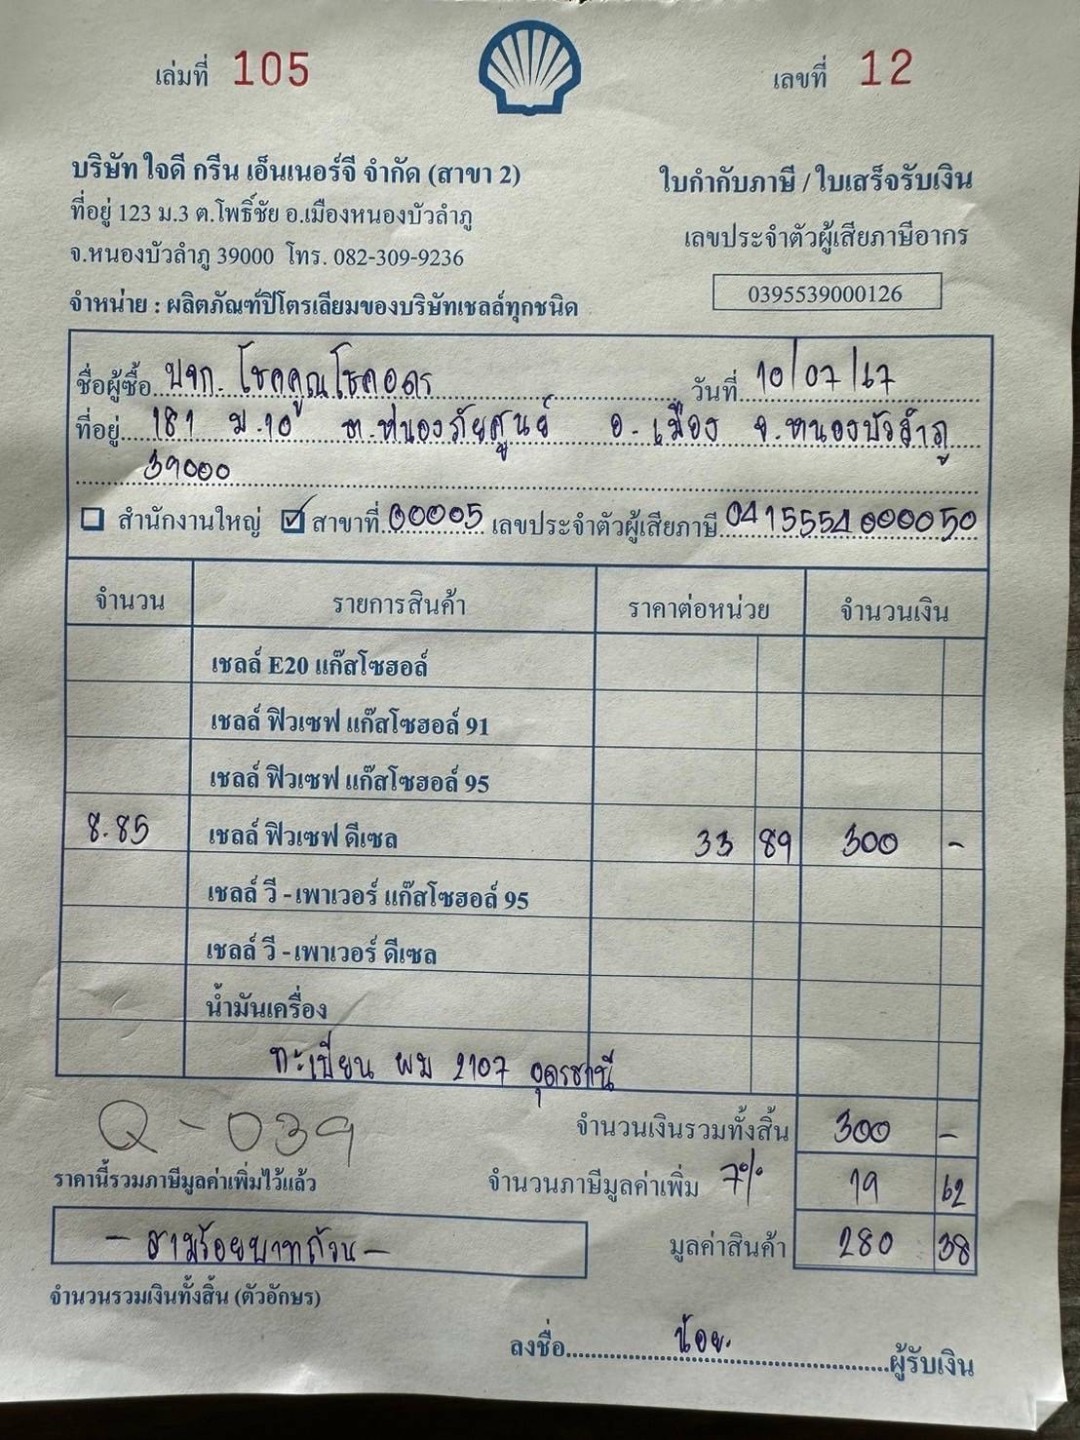 เล่มที่ 105
เลขที่ 12
บริษัท ใจดี กรีน เอ็นเนอร์จี จำกัด (สาขา 2)
ที่อยู่ 123 ม.3 ต.โพธิ์ชัย อ.เมืองหนองบัวลำภู
จ.หนองบัวลำภู 39000 โทร. 082-309-9236
จำหน่าย : ผลิตภัณฑ์ปิโตรเลียมของบริษัทเชลล์ทุกชนิด
ใบกำกับภาษี / ใบเสร็จรับเงิน
เลขประจำตัวผู้เสียภาษีอากร
0395539000126
ชื่อผู้ซื้อ บจก. โชคคูณโชคอดร วันที่ 10/07/67
ที่อยู่ 181 ม.10 ต.หนองภัยศูนย์ อ.เมือง จ.หนองบัวลำภู
39000
สำนักงานใหญ่ ☑ สาขาที่ 00005 เลขประจำตัวผู้เสียภาษี 0415554000050
จำนวน รายการสินค้า ราคาต่อหน่วย จำนวนเงิน
เชลล์ E20 แก๊สโซฮอล์
เชลล์ ฟิวเซฟ แก๊สโซฮอล์ 91
เชลล์ ฟิวเซฟ แก๊สโซฮอล์ 95
8.85 เชลล์ ฟิวเซฟ ดีเซล 33 89 300 -
เชลล์ วี - เพาเวอร์ แก๊สโซฮอล์ 95
เชลล์ วี - เพาเวอร์ ดีเซล
น้ำมันเครื่อง
ทะเบียน ผม 2107 อุดรธานี
Q - 039
จำนวนเงินรวมทั้งสิ้น 300 -
ราคานี้รวมภาษีมูลค่าเพิ่มไว้แล้ว
จำนวนภาษีมูลค่าเพิ่ม 7% 19 62
- สามร้อยบาทถ้วน -
มูลค่าสินค้า 280 38
จำนวนรวมเงินทั้งสิ้น (ตัวอักษร)
ลงชื่อ น้อย. ผู้รับเงิน